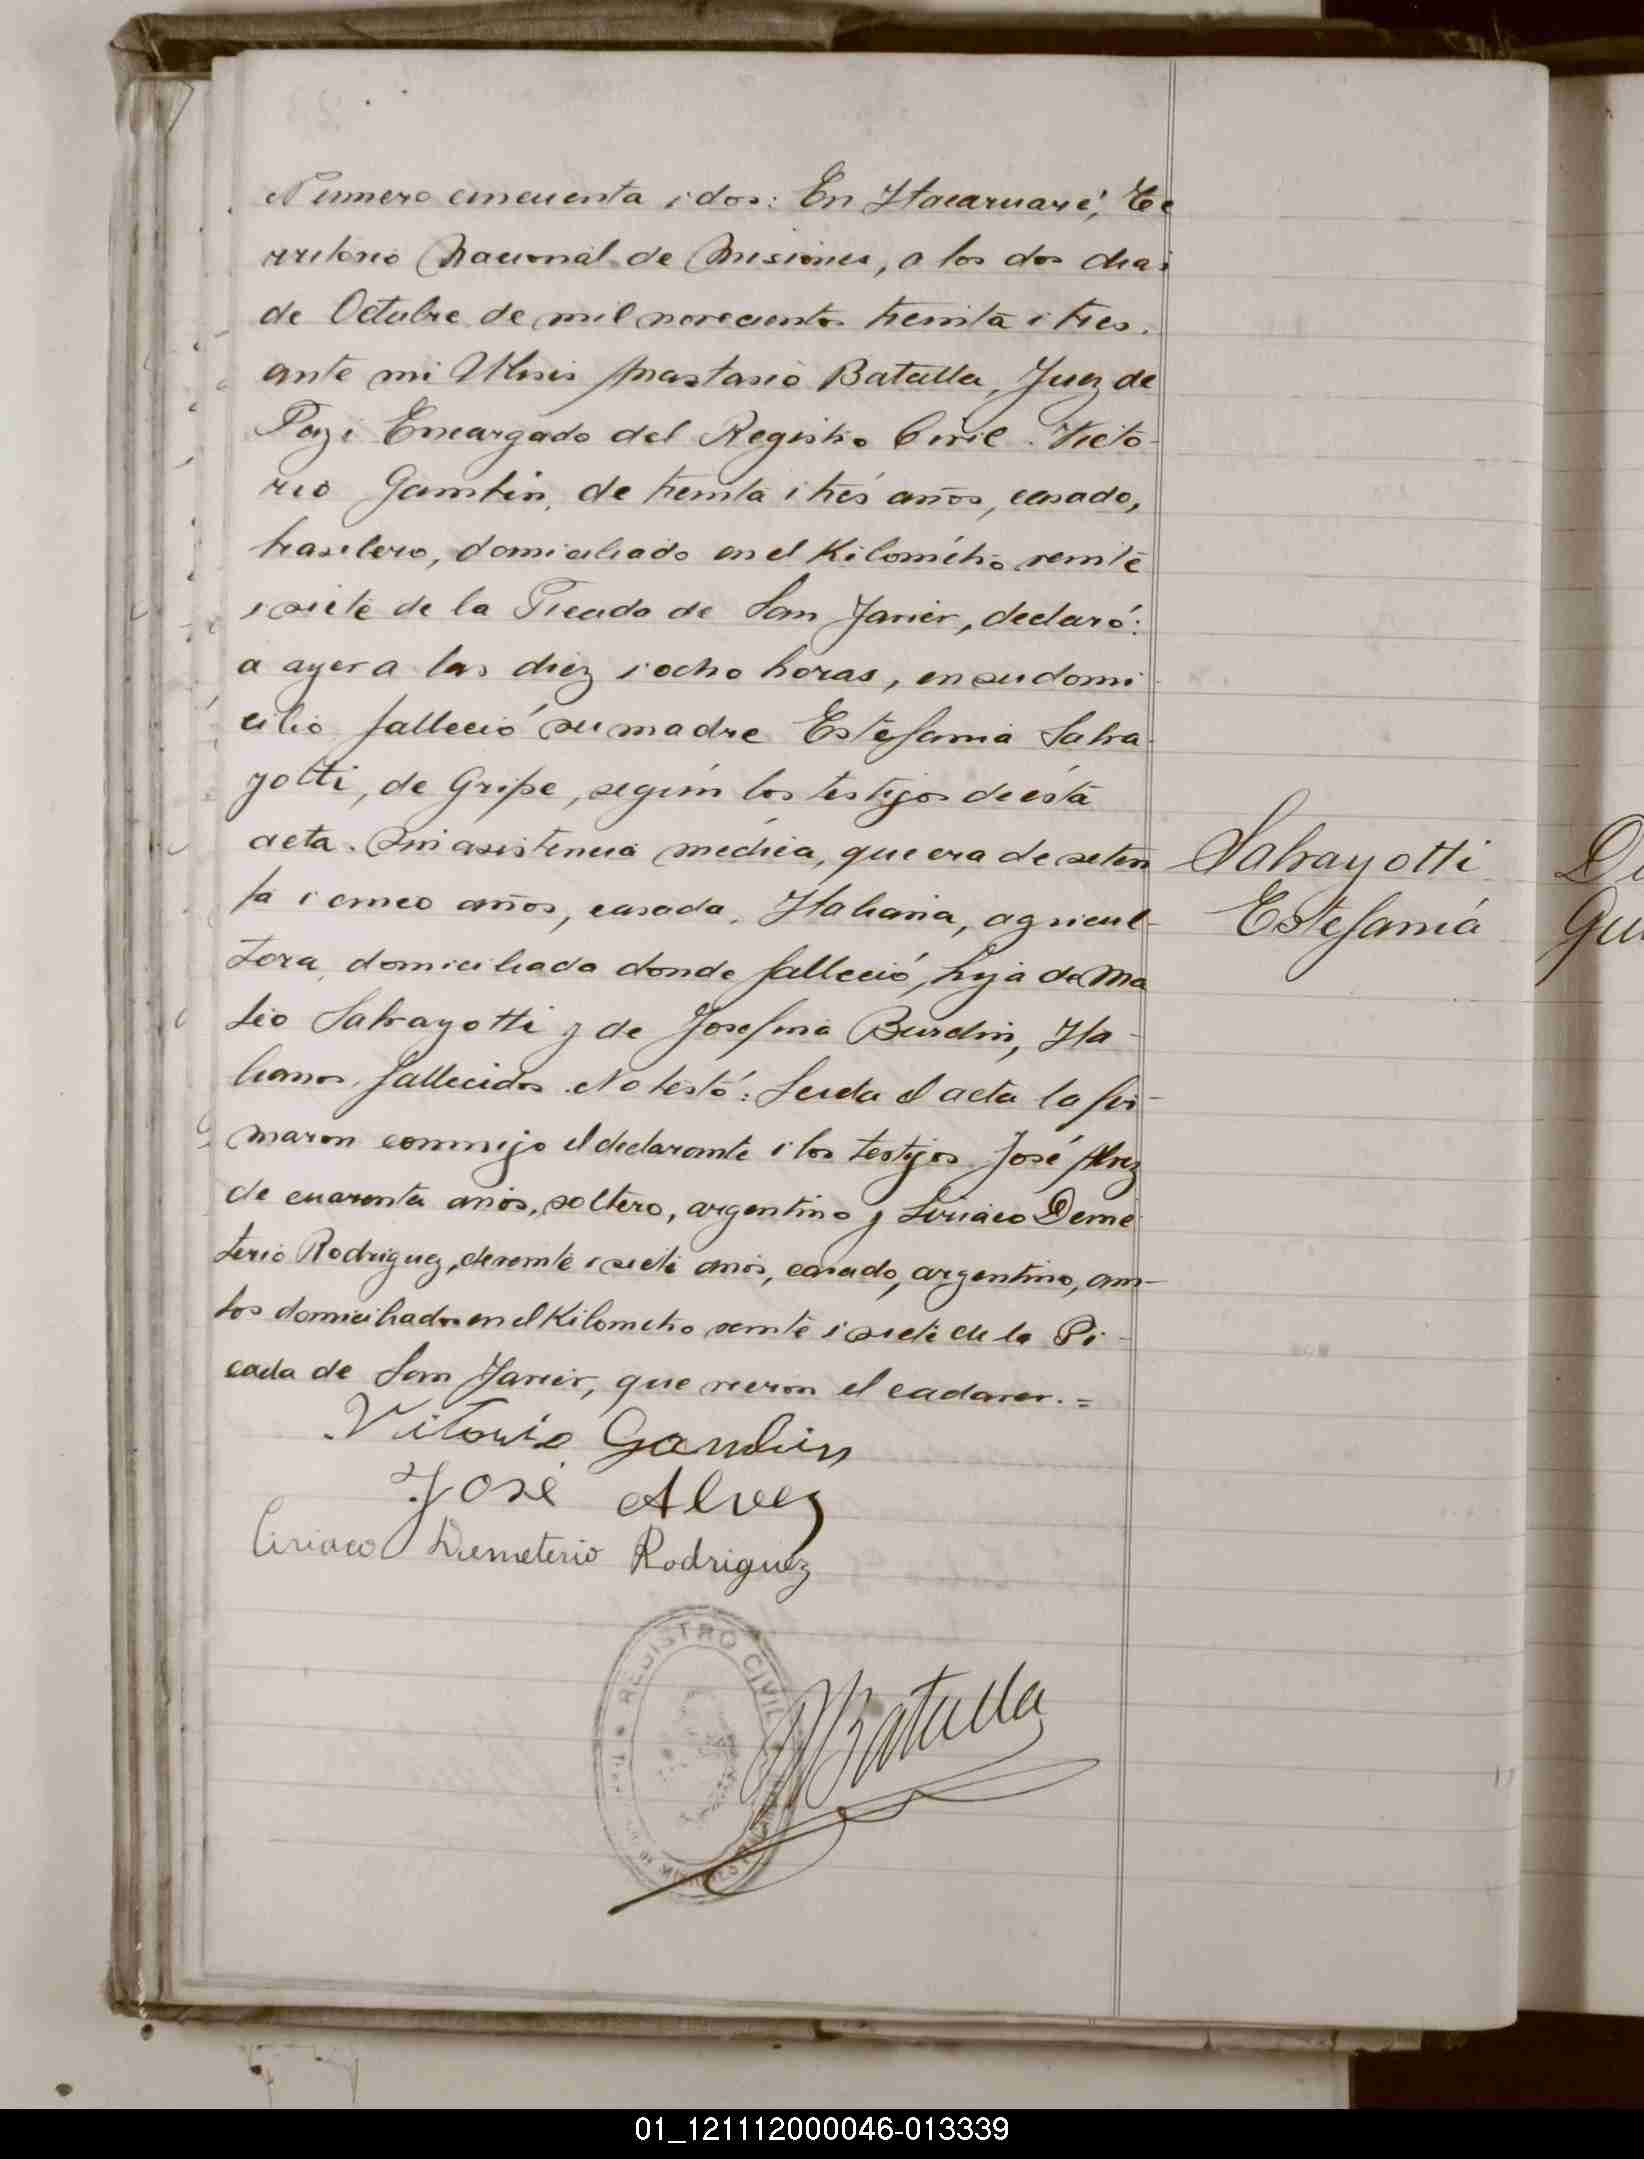 Numero cincuenta i dos: En Itacaruaré, Te
rritorio Nacional de Misiones, a los dos dias
de Octubre de mil novecientos treinta i tres.
ante mi Ulises Anastasio Batalla, Juez de
Paz i Encargado del Registro Civil. Victo-
rio Gambin, de treinta i trés años, casado,
brasilero, domiciliado en el Kilométro veinte
i siete de la Picada de San Javier, declaró:
a ayer a las diez i ocho horas, en su domi
cilio falleció su madre Estefania Salva-
yotti, de Gripe, según los testijos de ésta
acta. Sin asistencia médica, que era de seten
ta i cinco años, casada, Italiana, agricul-
tora, domiciliada donde falleció, hija de Ma
téo Salvayotti y de Josefina Burdin, Ita-
lianos, fallecidos. No testó: Leida el acta la fir-
maron conmigo el declarante i los testijos José Alvez
de cuarenta años, soltero, argentino y Siriaco Deme
terio Rodriguez, de veinte i siete años, casado, argentino, am-
bos domiciliados en el Kilometro veinte i siete de la Pi-
cada de San Javier, que vieron el cadaver. =
Salvayotti
Estefania
Vitorio Gambin
José Alvez
Ciriaco Demeterio Rodriguez
REGISTRO CIVIL
Batalla
01_121112000046-013339